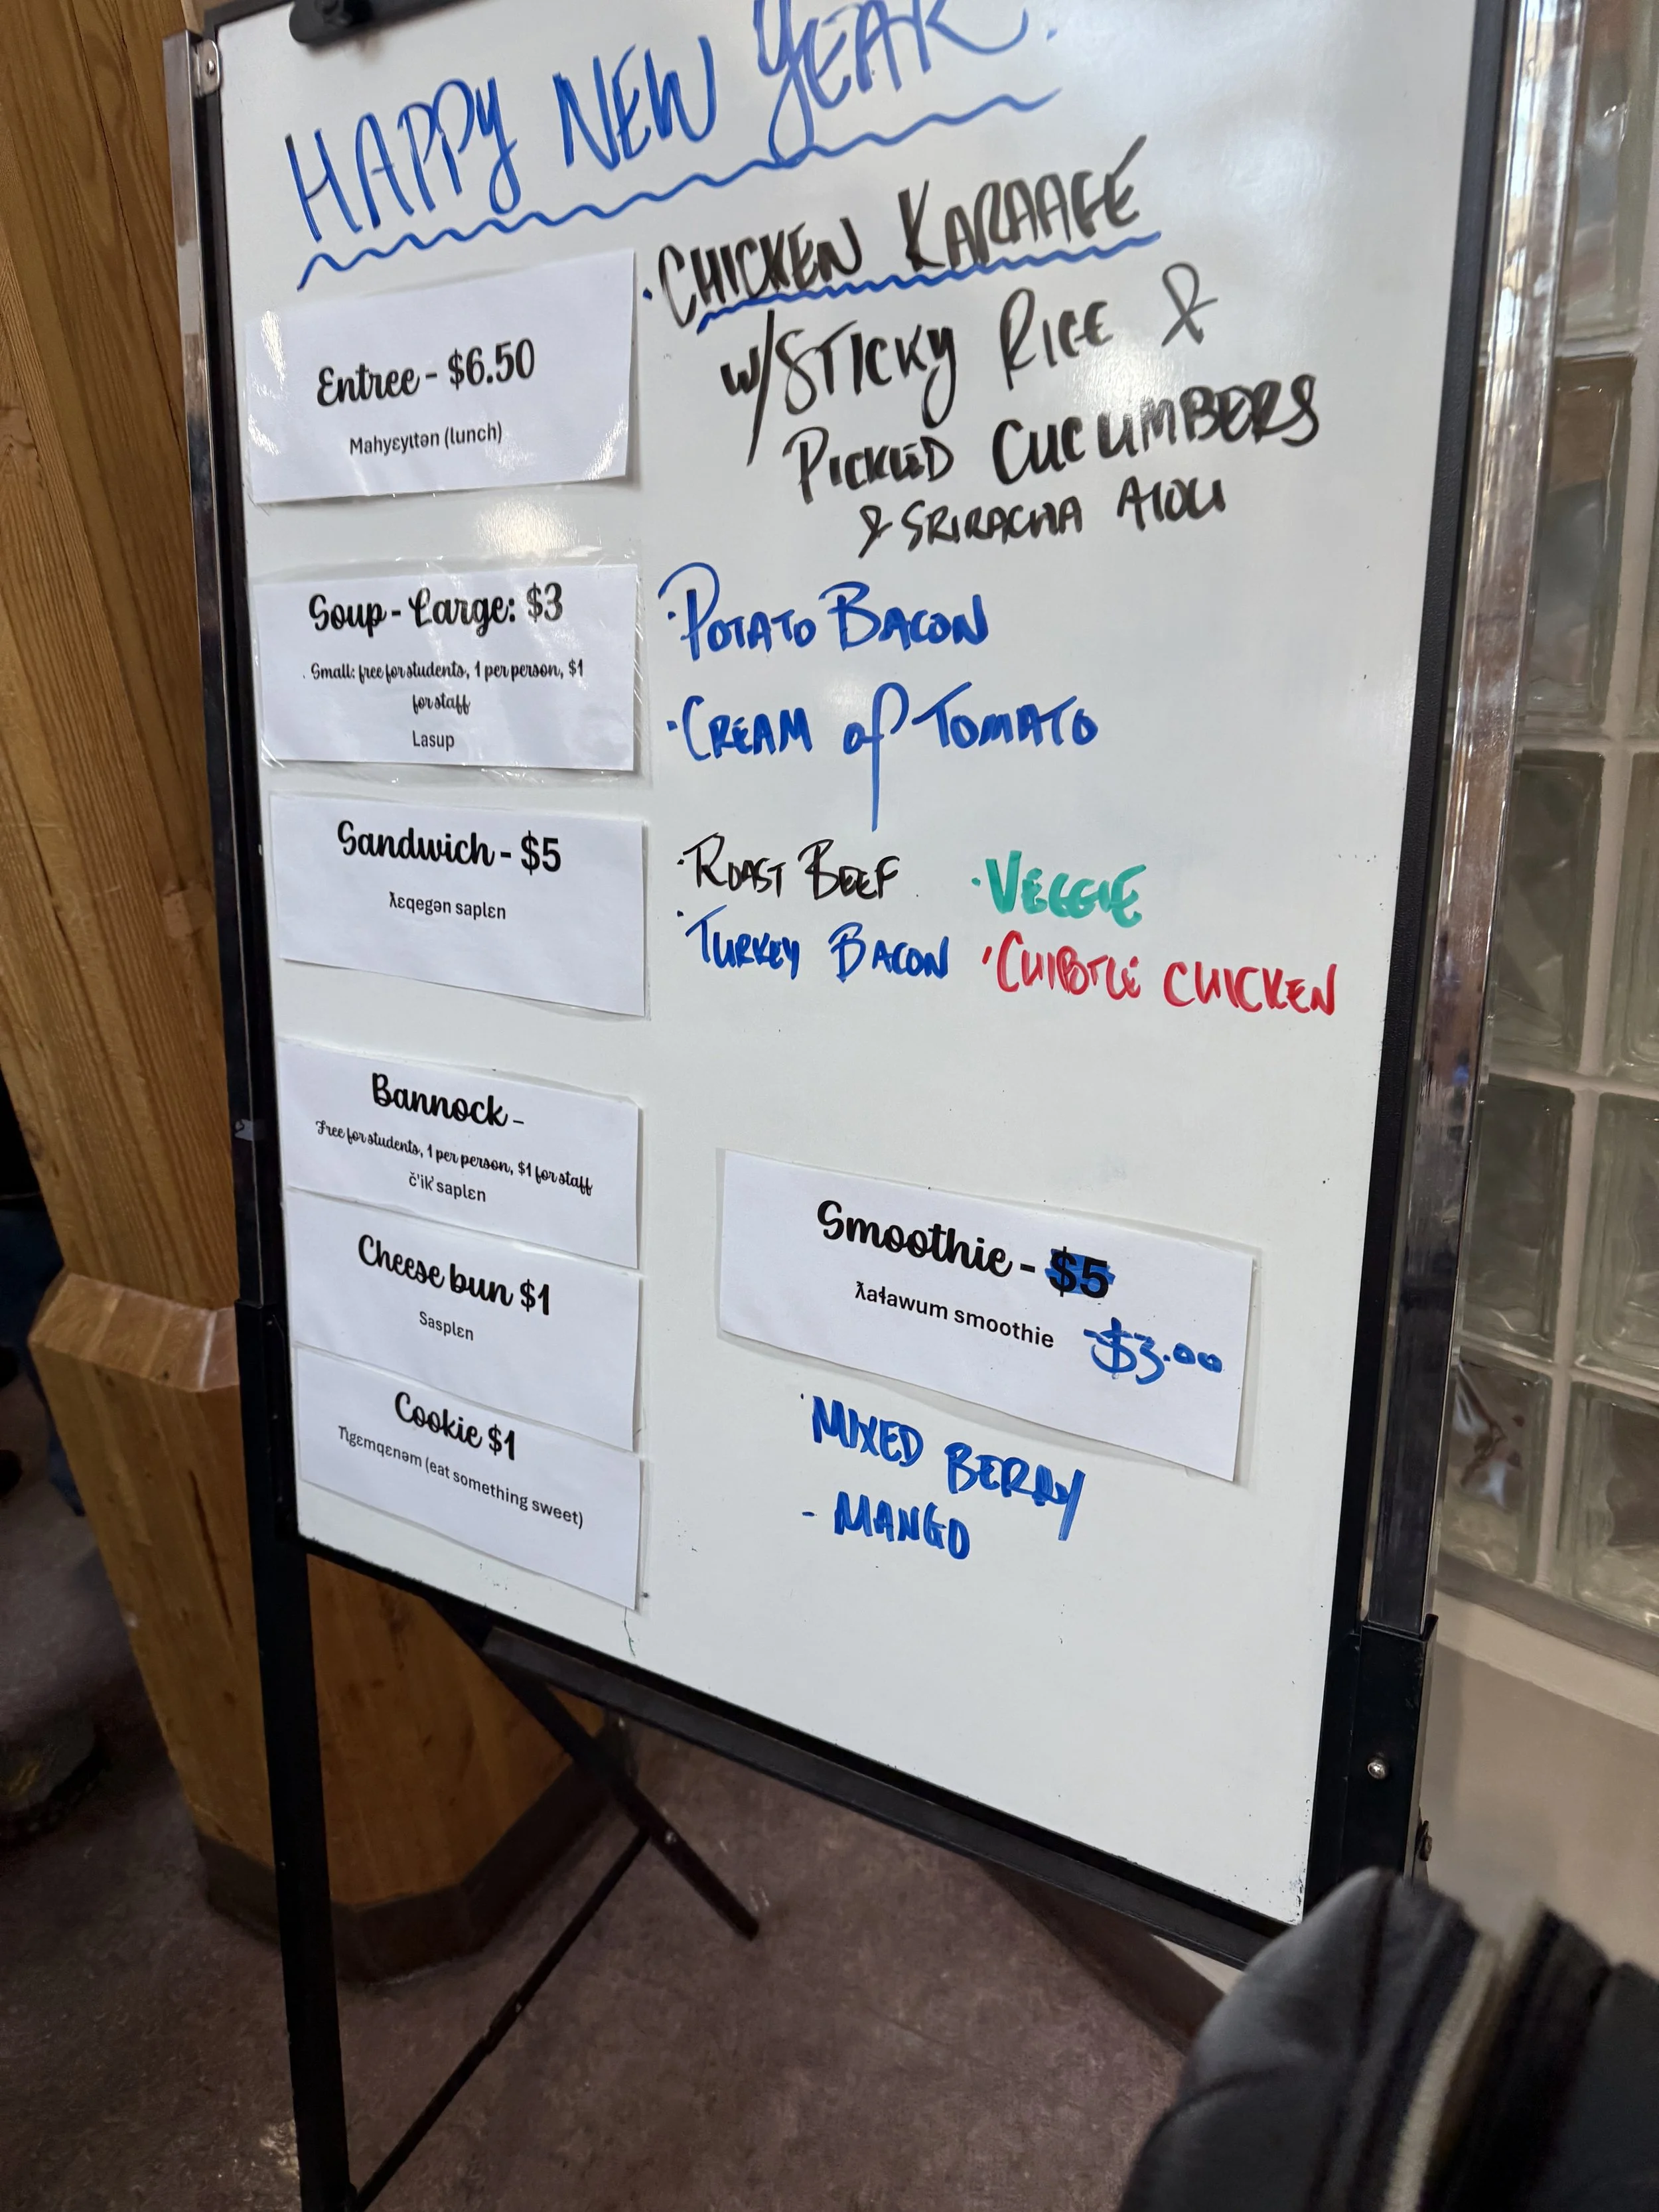 HAPPY NEW YEAR.
Entree - $6.50
Mahyɛyɩtən (lunch)
· CHICKEN KARAAGE
w/ STICKY RICE &
PICKLED CUCUMBERS
& SRIRACHA AIOLI
Soup - Large: $3
. Small: free for students, 1 per person, $1
for staff
Lasup
· POTATO BACON
· CREAM of TOMATO
Sandwich - $5
ƛɛqegən saplɛn
· ROAST BEEF · VEGGIE
· TURKEY BACON · CHIBOTLE CHICKEN
Bannock -
Free for students, 1 per person, $1 for staff
č'ik̓ saplɛn
Cheese bun $1
Sasplɛn
Cookie $1
Tɩgɛmqɛnəm (eat something sweet)
Smoothie - $5
ƛaɬawum smoothie
- $3.00
· MIXED BERRY
- MANGO